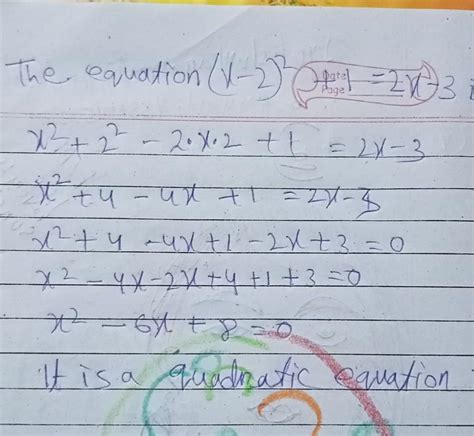 The equation (x-2)² + 1 = 2x - 3
Date
Page
x² + 2² - 2·x·2 + 1 = 2x - 3
x² + 4 - 4x + 1 = 2x - 3
x² + 4 - 4x + 1 - 2x + 3 = 0
x² - 4x - 2x + 4 + 1 + 3 = 0
x² - 6x + 8 = 0
It is a quadratic equation